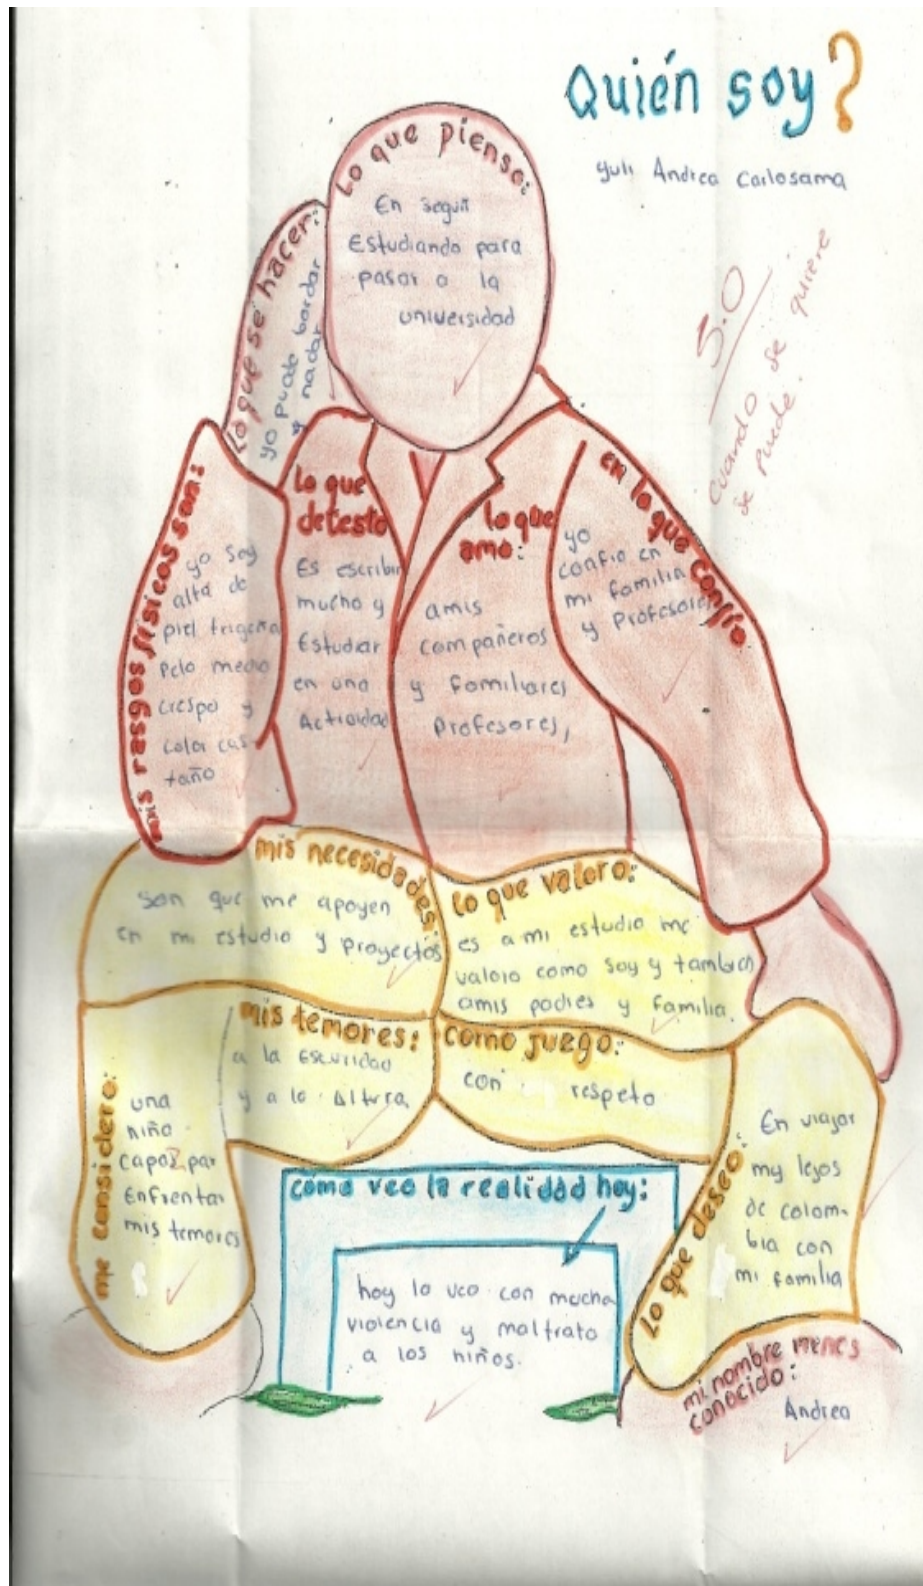 Quién soy?
yuli Andrea Carlosama
5.0
cuando se quiere
se puede.
Lo que pienso:
En seguir
Estudiando para
pasar a la
universidad
Lo que se hacer:
yo puedo bordar
y nadar
mis rasgos físicos son:
yo soy
alta de
piel trigeña
pelo medio
crespo y
color cas
taño
lo que
detesto
Es escribir
mucho y
Estudiar
en una
Actividad
lo que
amo:
amis
compañeros
y familiares
profesores,
en lo que confío
yo
confio en
mi familia
y profesores
mis necesidades:
son que me apoyen
en mi estudio y proyectos
lo que valoro:
es a mi estudio me
valoro como soy y tambien
amis padres y familia.
mis temores:
a la Escuridad
y a la Altura
como juego:
con respeto
me considero:
una
niña
capaz par
Enfrentar
mis temores
cómo veo la realidad hoy:
hoy lo veo con mucha
violencia y maltrato
a los niños.
lo que deseo:
En viajar
muy lejos
de colom-
bia con
mi familia
mi nombre menos
conocido:
Andrea